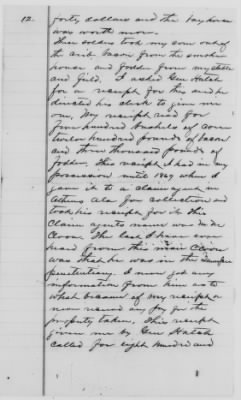 12.
forty dollars and the bay horse
was worth more.
These soldiers took my corn out of
the crib bacon from the smoke
house and fodder from my stable
and field. I asked Gen Hatch
for a receipt for this and he
directed his clerk to give me
one. My receipt was for
five hundred bushels of corn
twelve hundred pounds of bacon
and three thousand pounds of
fodder. This receipt I had in my
possession until 1869 when I
gave it to a claim agent in
Athens Ala for collection and
took his receipt for it this
claim agents name was
The last I have ever
heard from this man
was that he was in the
penitentiary. I never got any
information from him as to
what became of my receipt &
never received any pay for the
property taken. This receipt
given me by Gen Hatch
called for eight hundred and